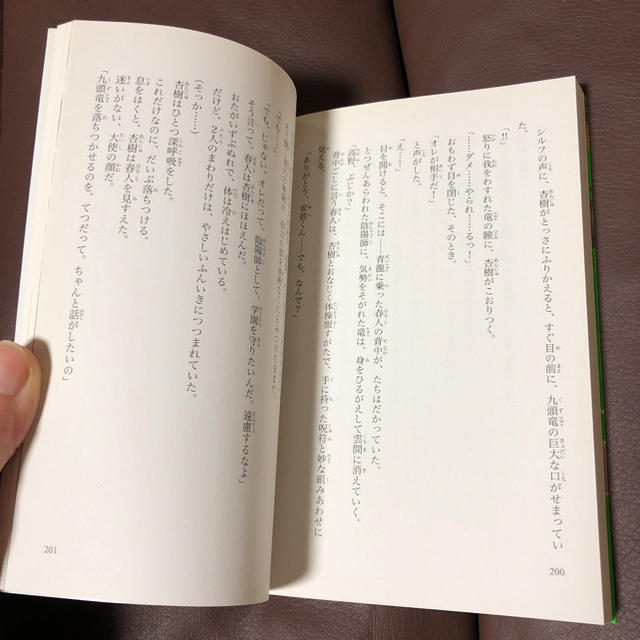 シルフの声に、杏樹がとっさにふりかえると、すぐ目の前に、九頭竜の巨大な口がせまってい
た。
「!!」
怒りに我をわすれた竜の瞳に、杏樹がこおりつく。
「……ダメ……やられ……るっ!」
おもわず目を閉じた、そのとき。
「オレが相手だ!」
と声がした。
「え……」
目を開けると、そこには――青龍に乗った春人の背中が、たちはだかっていた。
とつぜんあらわれた陰陽師に、気勢をそがれた竜は、身をひるがえして雲間に消えていく。
「高野、ぶじか?」
背中ごしに言う春人は、杏樹とおなじく体操服すがたで、手に持った呪符と妙な組みあわせに
見える。
「ありがとう、安倍くん……でも、なんで?」
「でも……」
「でも、じゃない。オレだって、陰陽師として、学園を守りたいんだ。遠慮するなよ」
そう言って、春人は杏樹にほほえんだ。
おたがいずぶぬれで、体は冷えはじめている。
だけど、2人のまわりだけは、やさしいふんいきにつつまれていた。
(そっか……)
杏樹はひとつ深呼吸をした。
これだけなのに、だいぶ落ちつける。
息をはくと、杏樹は春人を見すえた。
迷いがない、大使の顔だ。
「九頭竜を落ちつかせるのを、てつだって。ちゃんと話がしたいの」
200
201